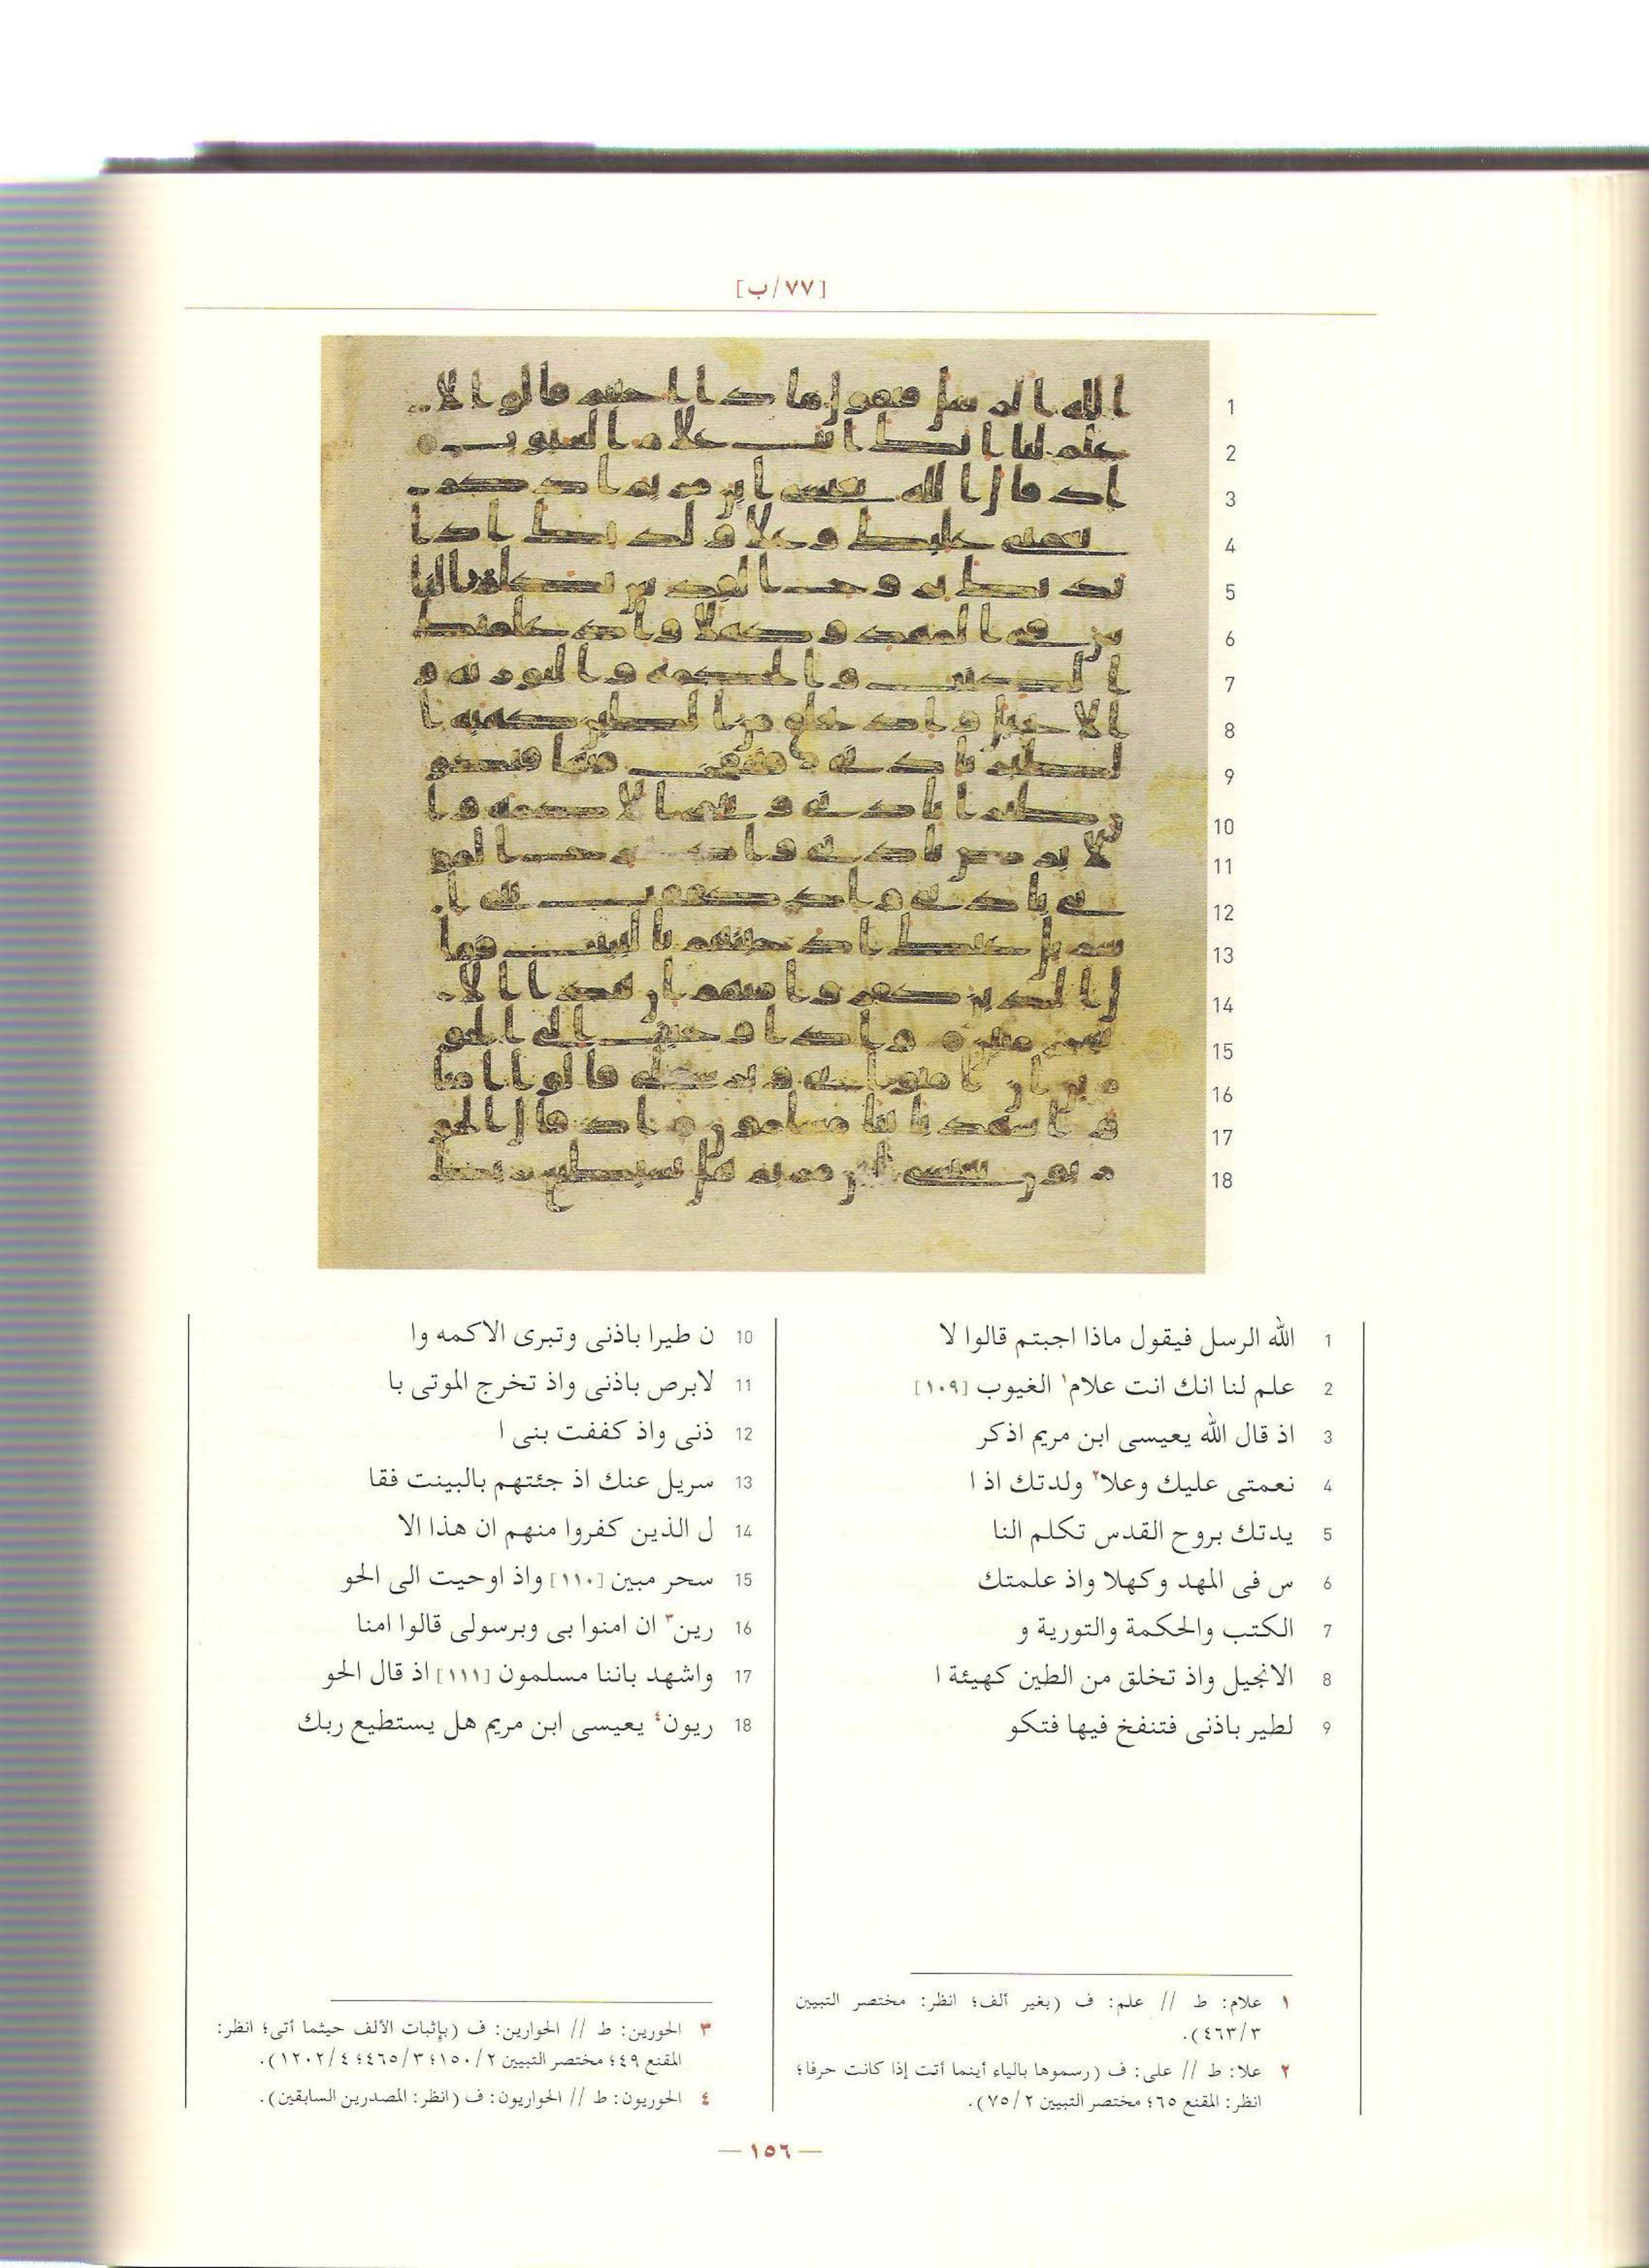 [٧٧/ب]
1
2
3
4
5
6
7
8
9
10
11
12
13
14
15
16
17
18
1 الله الرسل فيقول ماذا اجبتم قالوا لا
2 علم لنا انك انت علام١ الغيوب [١٠٩]
3 اذ قال الله يعيسى ابن مريم اذكر
4 نعمتى عليك وعلا٢ ولدتك اذ ا
5 يدتك بروح القدس تكلم النا
6 س فى المهد وكهلا واذ علمتك
7 الكتب والحكمة والتورية و
8 الانجيل واذ تخلق من الطين كهيئة ا
9 لطير باذنى فتنفخ فيها فتكو
10 ن طيرا باذنى وتبرى الاكمه وا
11 لابرص باذنى واذ تخرج الموتى با
12 ذنى واذ كففت بنى ا
13 سريل عنك اذ جئتهم بالبينت فقا
14 ل الذين كفروا منهم ان هذا الا
15 سحر مبين [١١٠] واذ اوحيت الى الحو
16 رين٣ ان امنوا بى وبرسولى قالوا امنا
17 واشهد باننا مسلمون [١١١] اذ قال الحو
18 ريون٤ يعيسى ابن مريم هل يستطيع ربك
١ علام: ط // علم: ف (بغير ألف؛ انظر: مختصر التبيين
٤٦٣/٣).
٢ علا: ط // على: ف (رسموها بالياء أينما أتت إذا كانت حرفا؛
انظر: المقنع ٦٥؛ مختصر التبيين ٧٥/٢).
٣ الحورين: ط // الحوارين: ف (بإثبات الألف حيثما أتى؛ انظر:
المقنع ٤٩؛ مختصر التبيين ١٥٠/٢؛ ٤٦٥/٣؛ ١٢٠٢/٤).
٤ الحوريون: ط // الحواريون: ف (انظر: المصدرين السابقين).
— ١٥٦ —